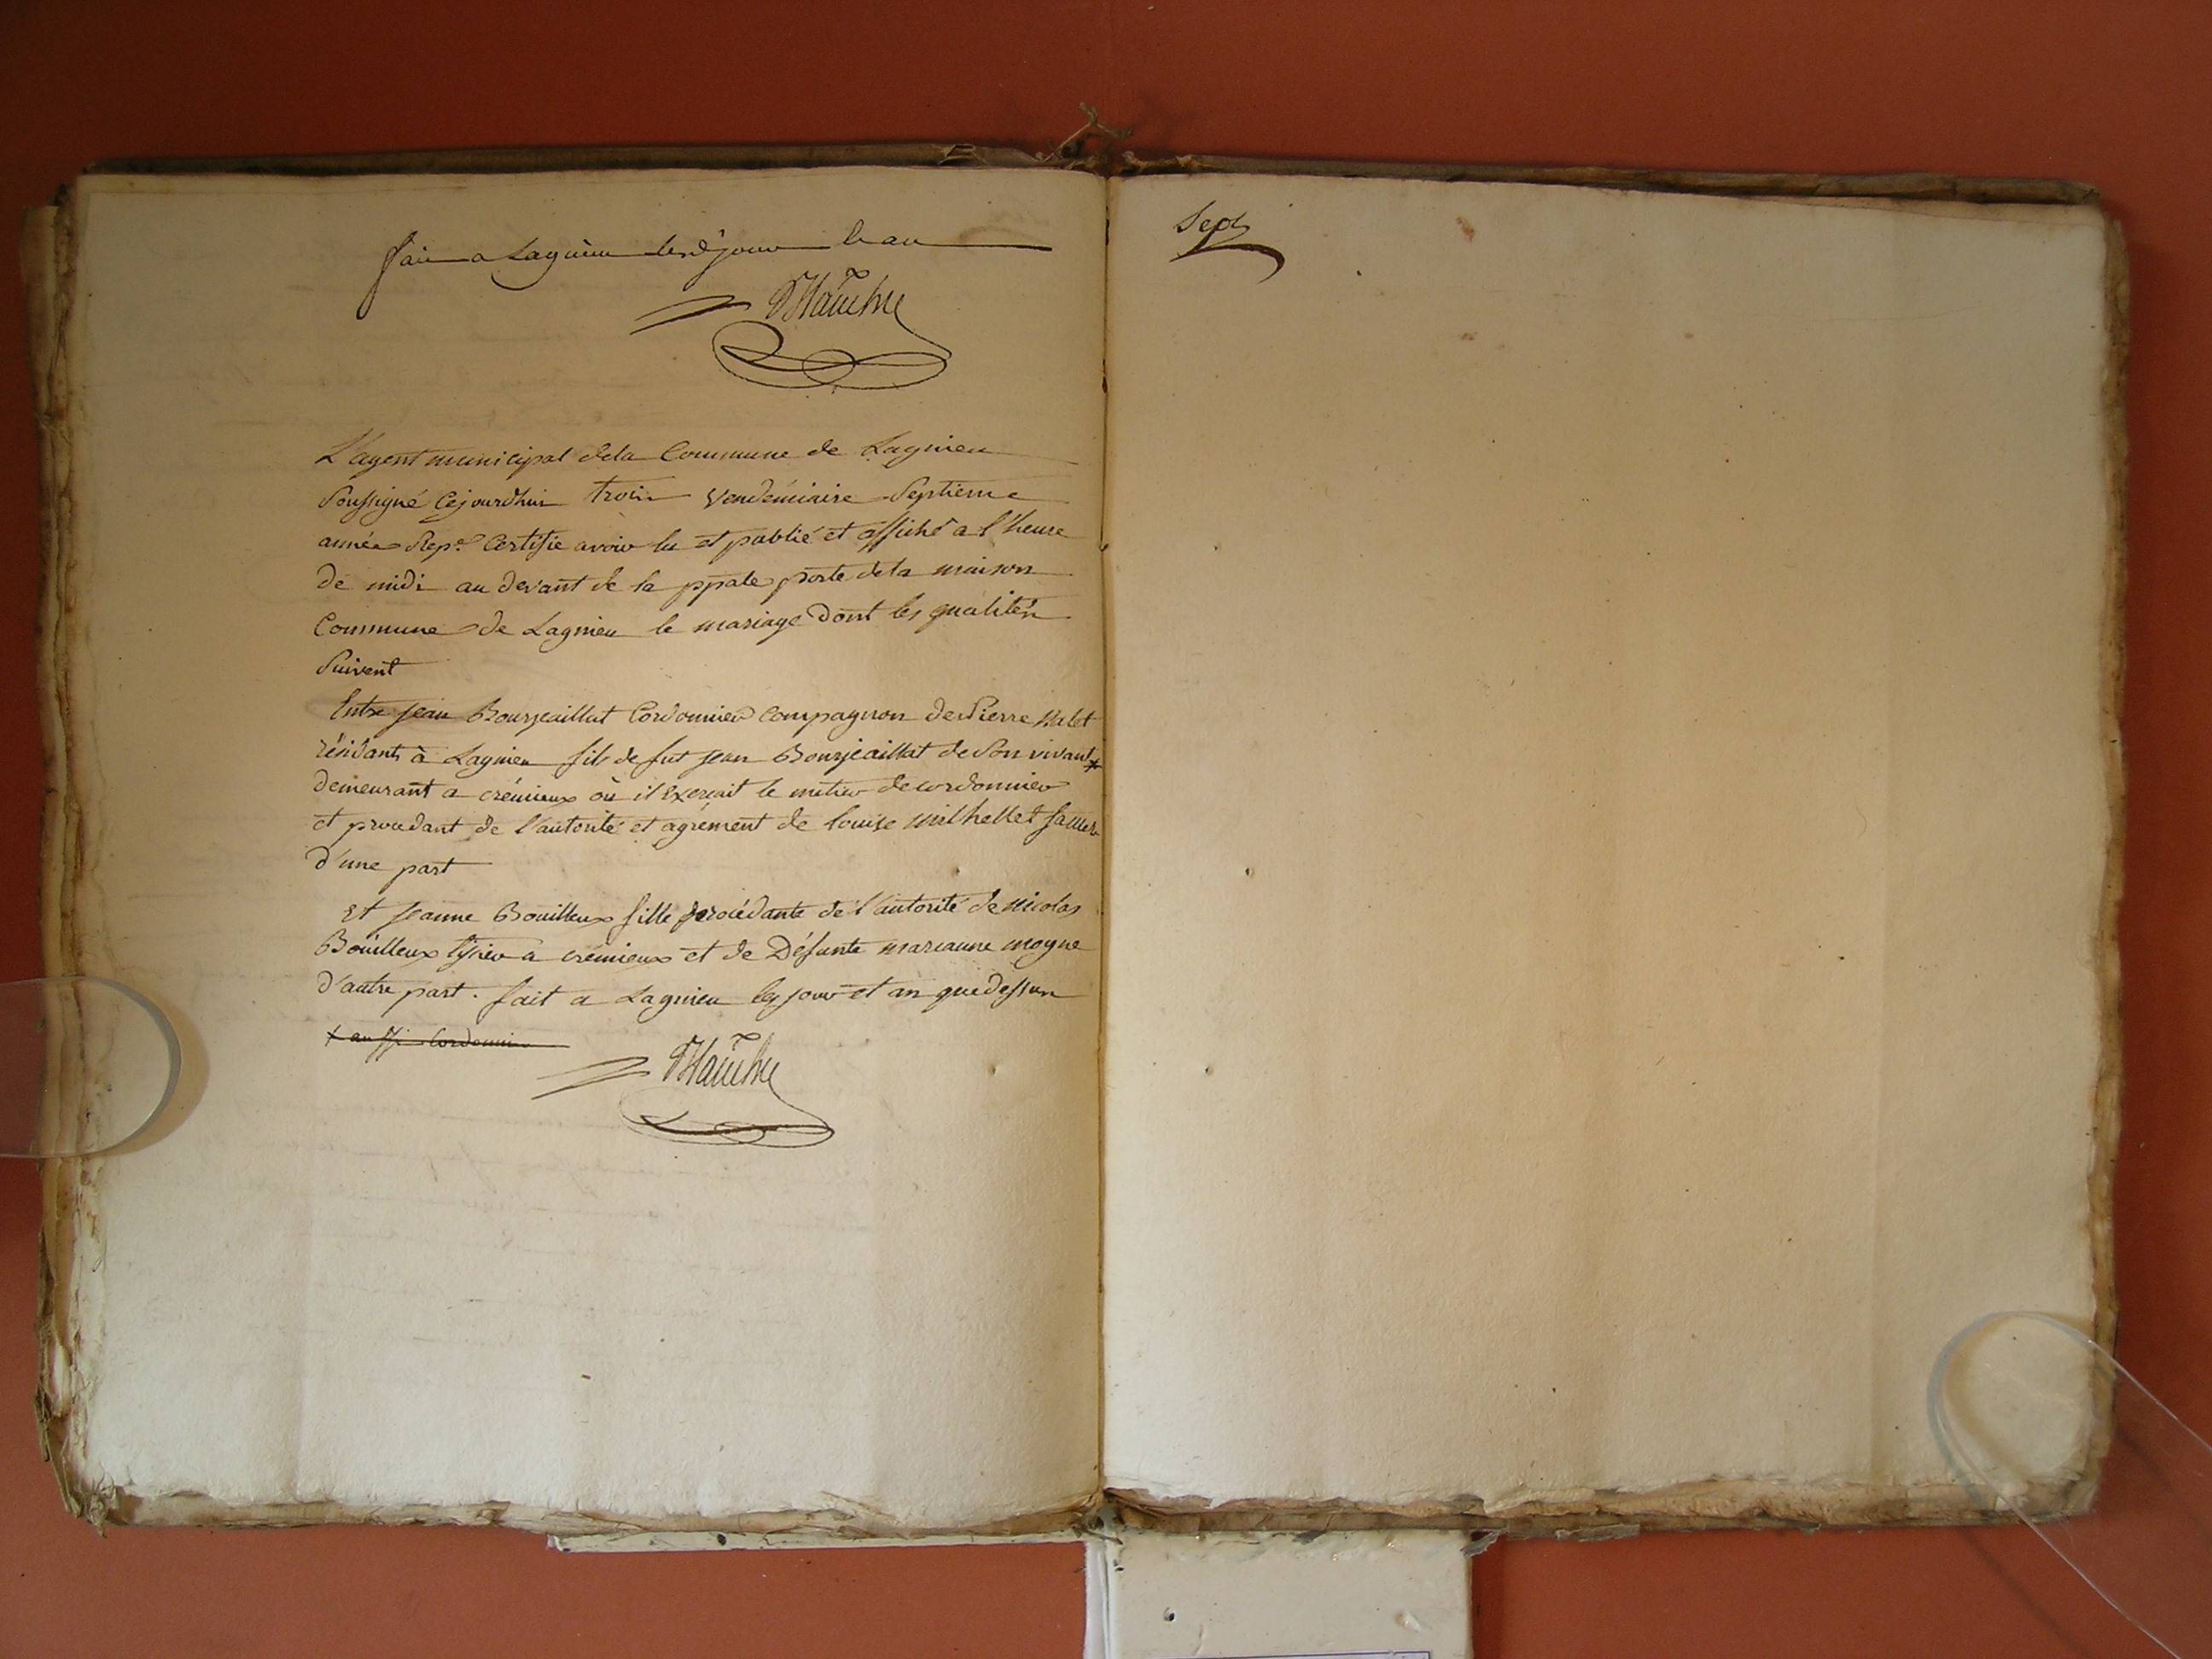 fait a Lagnieu lesd jour et an
L'agent municipal dela Commune de Lagnieu
Soussigné Cejourdhui trois Vendémiaire Septieme
année Rep.e Certifie avoir lu et publié et affiché a l'heure
de midi au devant de la ppale porte dela maison
Commune de Lagnieu le mariage dont les qualités
Suivent
Entre jean Bourjeaillat Cordonnier Compagnon de Pierre
résidants à Lagnieu fils de fut jean Bourjeaillat de Son vivant
demeurant a crémieux où il exerçait le métier de cordonnier
et procédant de l'autorité et agrément de louise Milhellet Sa mere
d'une part
Et jeanne Bouilleux fille procédante de l'autorité de nicolas
Bouilleux a crémieux et de Défunte marianne moyne
d'autre part. fait a Lagnieu les jour et an que dessus
+ aussi Cordonnier
Sept